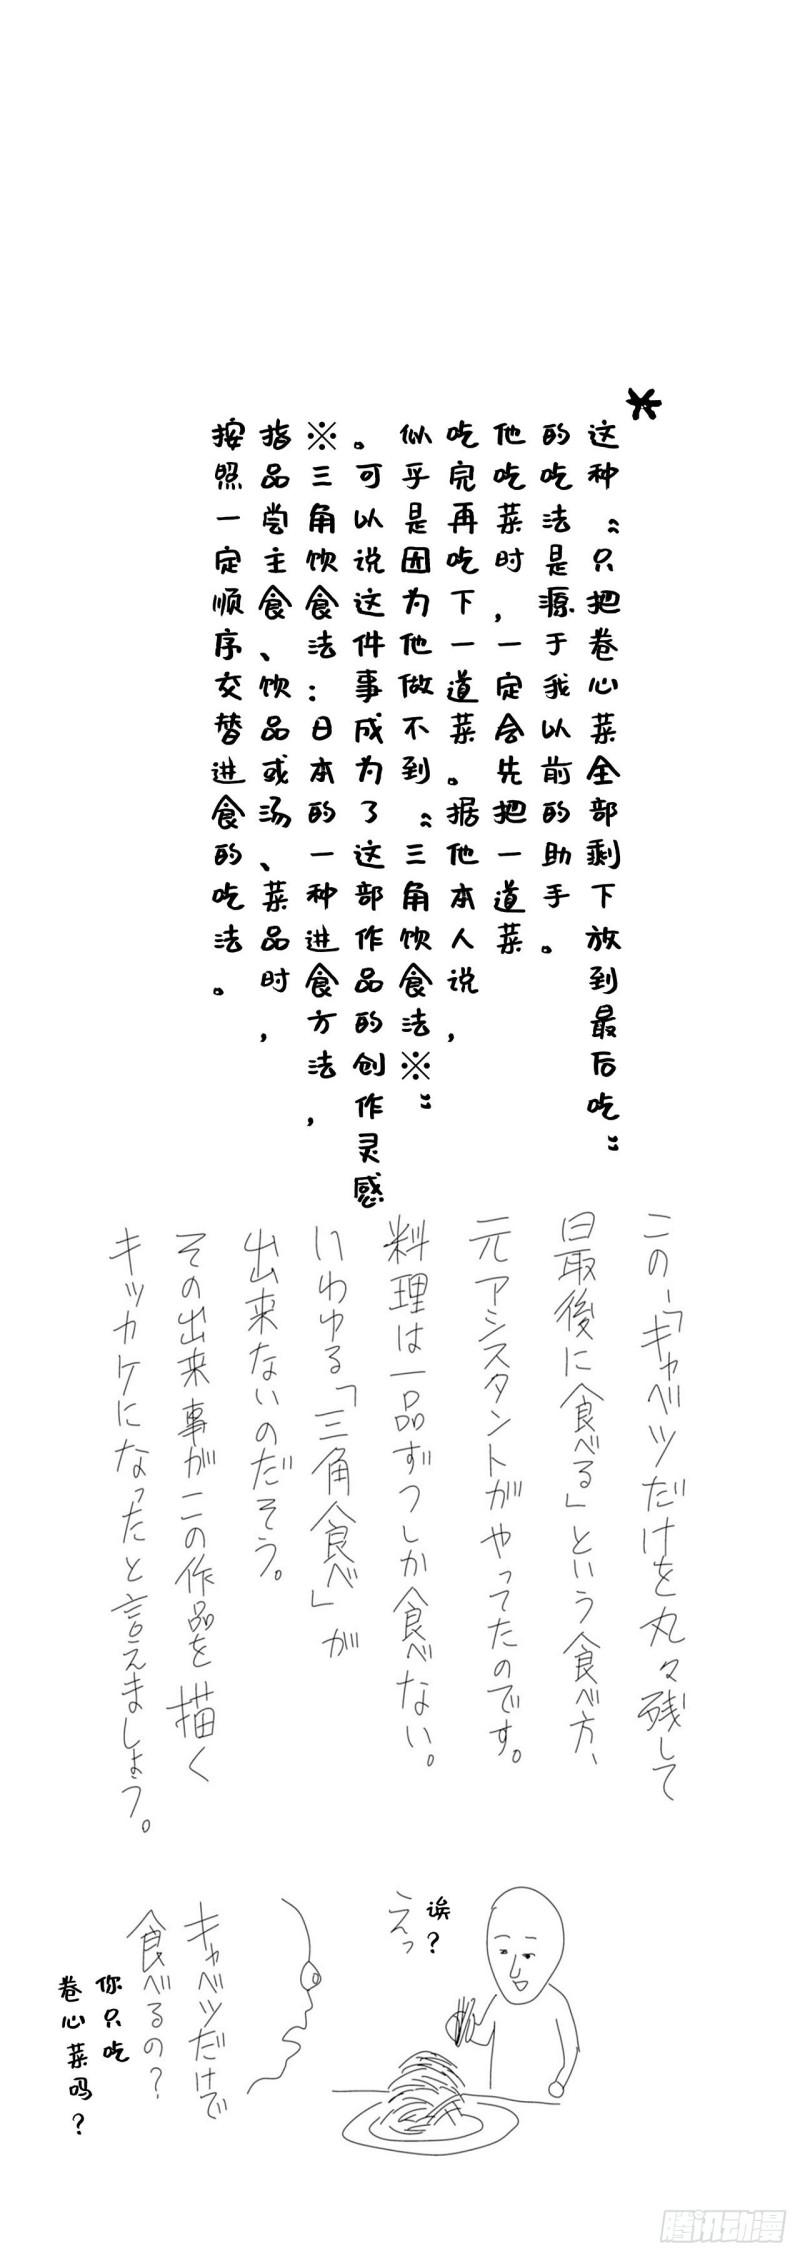 这种“只把卷心菜全部剩下放到最后吃”
的吃法是源于我以前的助手。
他吃菜时，一定会先把一道菜
吃完再吃下一道菜。据他本人说，
似乎是因为他做不到“三角饮食法※”
。可以说这件事成为了这部作品的创作灵感
※三角饮食法：日本的一种进食方法，
指品尝主食、饮品或汤、菜品时，
按照一定顺序交替进食的吃法。
この「キャベツだけを丸々残して
最後に食べる」という食べ方、
元アシスタントがやってたのです。
料理は一品ずつしか食べない。
いわゆる「三角食べ」が
出来ないのだそう。
その出来事がこの作品を描く
キッカケになったと言えましょう。
诶？
えっ
キャベツだけで
食べるの？
你只吃
卷心菜吗？
腾讯动漫